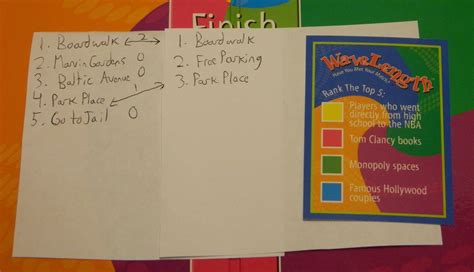 Finish
1. Boardwalk 2
2. Marvin Gardens 0
3. Baltic Avenue 0
4. Park Place 1
5. Go to Jail 0
1. Boardwalk
2. Free Parking
3. Park Place
WaveLength
Have You Met Your Match?
Rank The Top 5:
Players who went
directly from high
school to the NBA
Tom Clancy books
Monopoly spaces
Famous Hollywood
couples